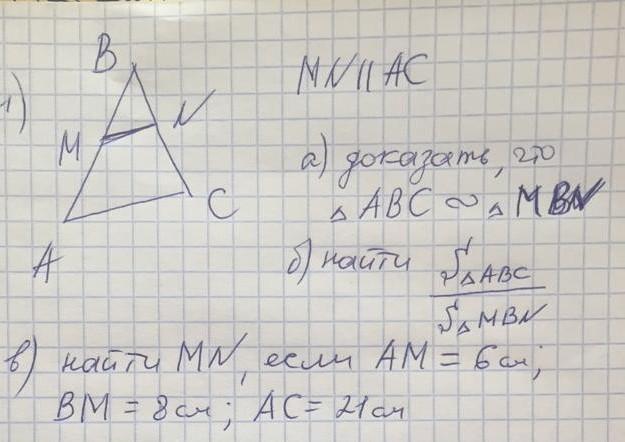 1)
B
MN || AC
N
M
а) доказать, что
△ ABC ∼ △ MBN
C
A
б) найти S△ABC / S△MBN
в) найти MN, если AM = 6 см;
BM = 8 см; AC = 21 см